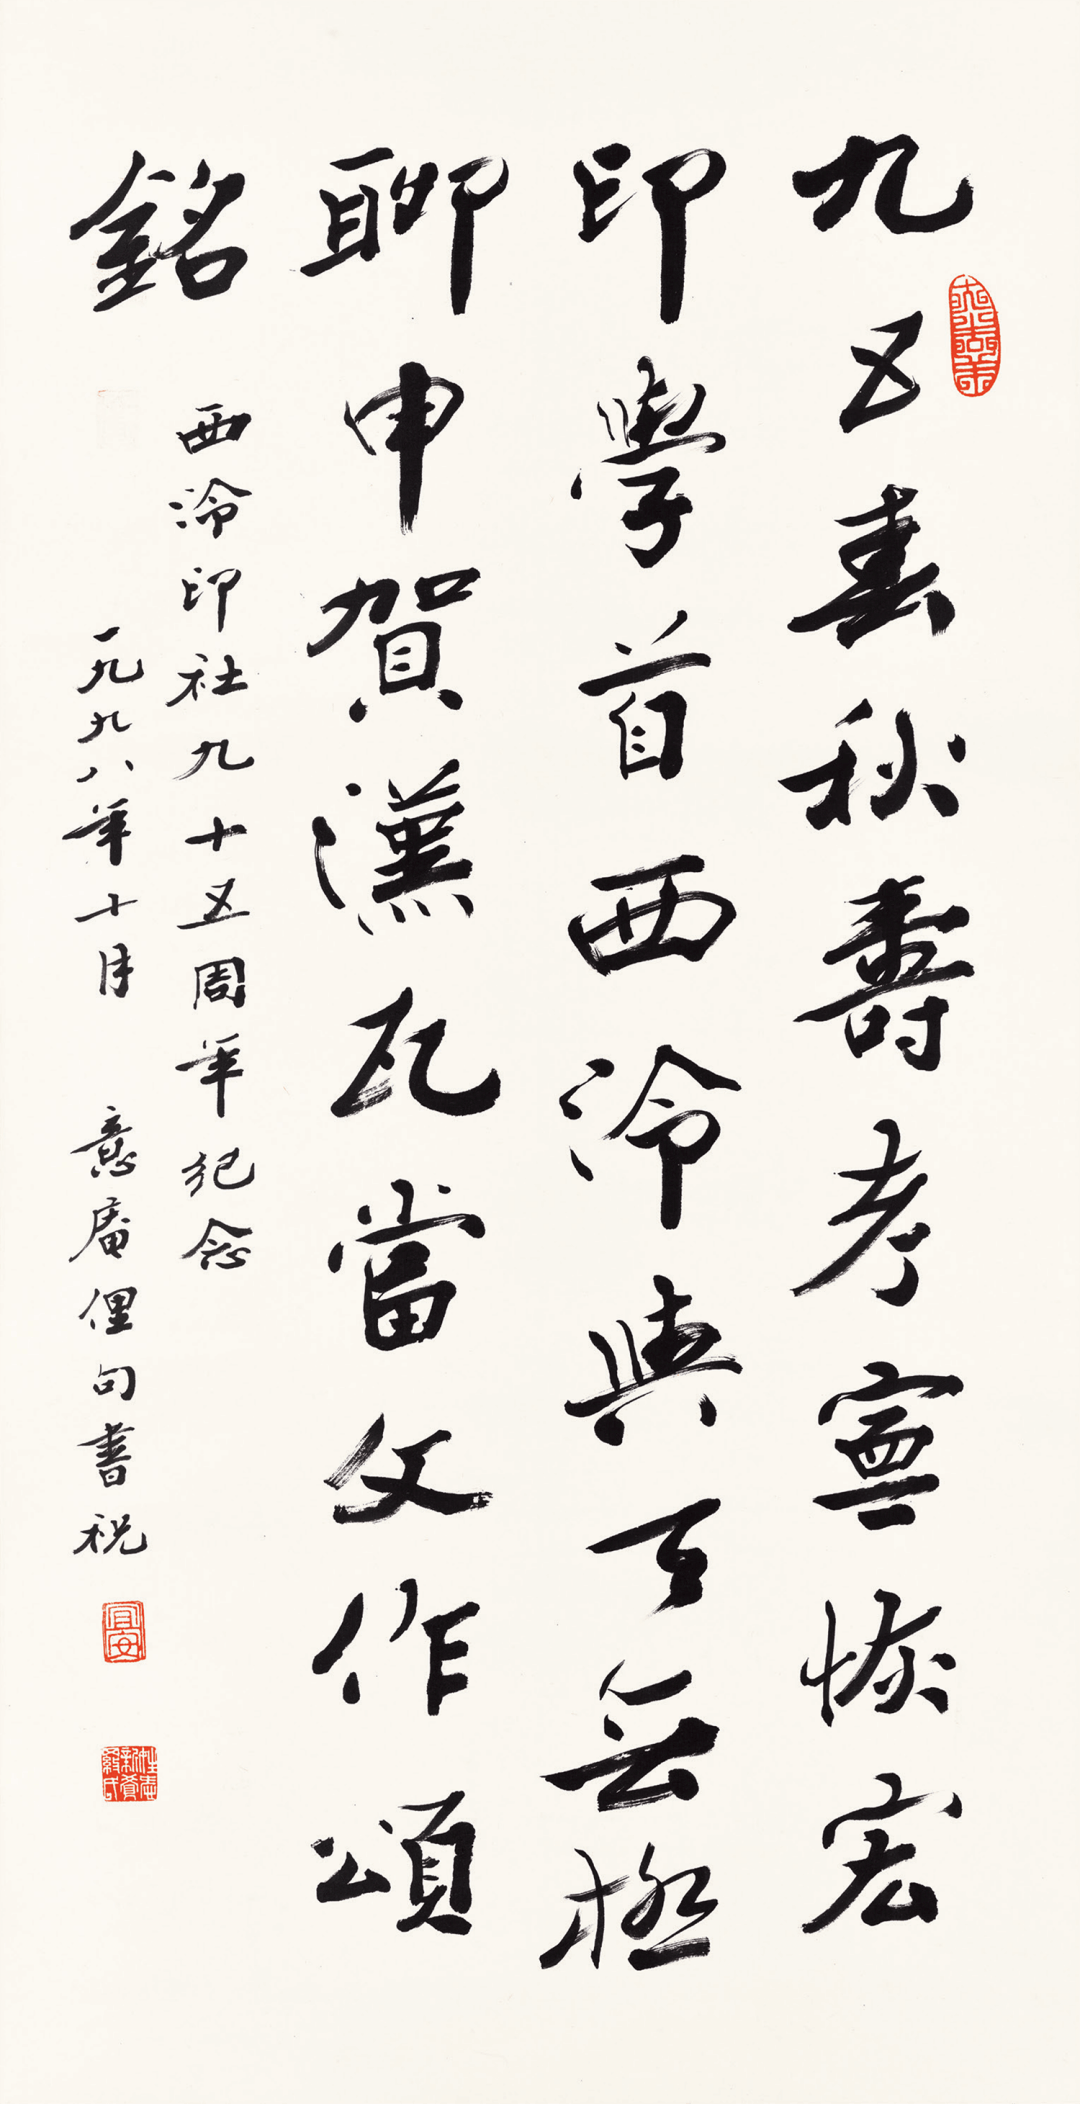 九五春秋壽考寧恢宏
印學首西泠與天無極
聊申賀漢瓦當文作頌
銘
西泠印社九十五周年紀念
一九九八年十月 意庵俚句書祝